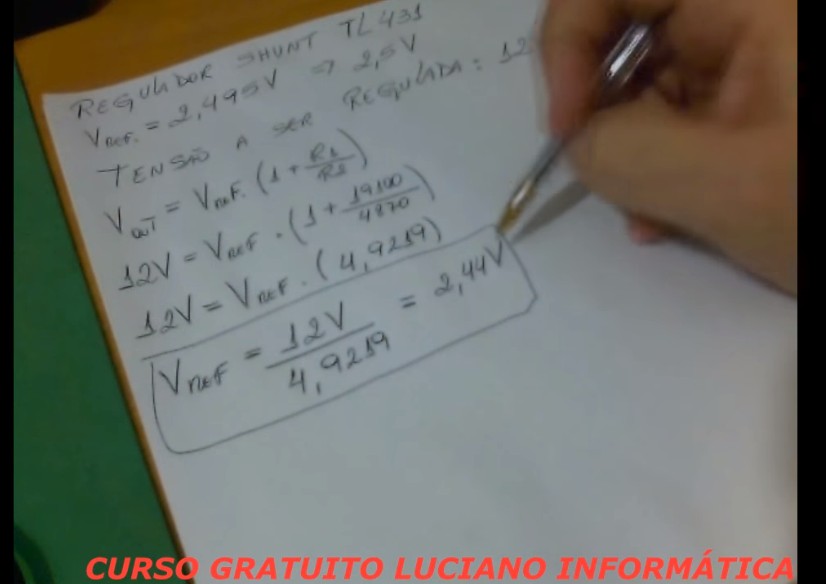 REGULADOR SHUNT TL431
VREF. = 2,495V => 2,5V
TENSÃO A SER REGULADA: 12
Vout = VREF. (1 + R1/R2)
12V = VREF . (1 + 19100/4870)
12V = VREF . (4,9219)
VREF = 12V/4,9219 = 2,44V
CURSO GRATUITO LUCIANO INFORMÁTICA